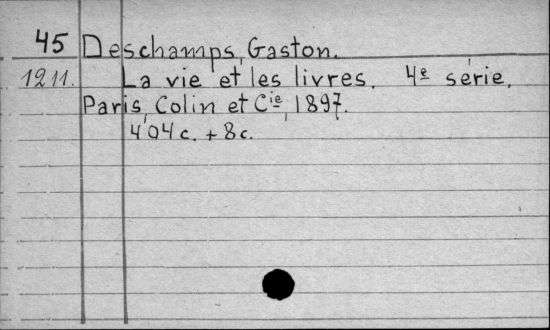 45 Deschamps, Gaston.
1211. La vie et les livres. 4e série.
Paris, Colin et Cie, 1897.
404 c. + 8 c.